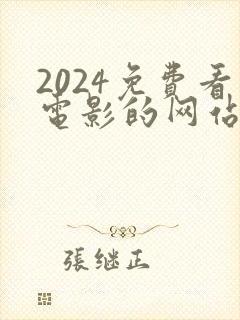 2024免費看
電影的网佔
張继正